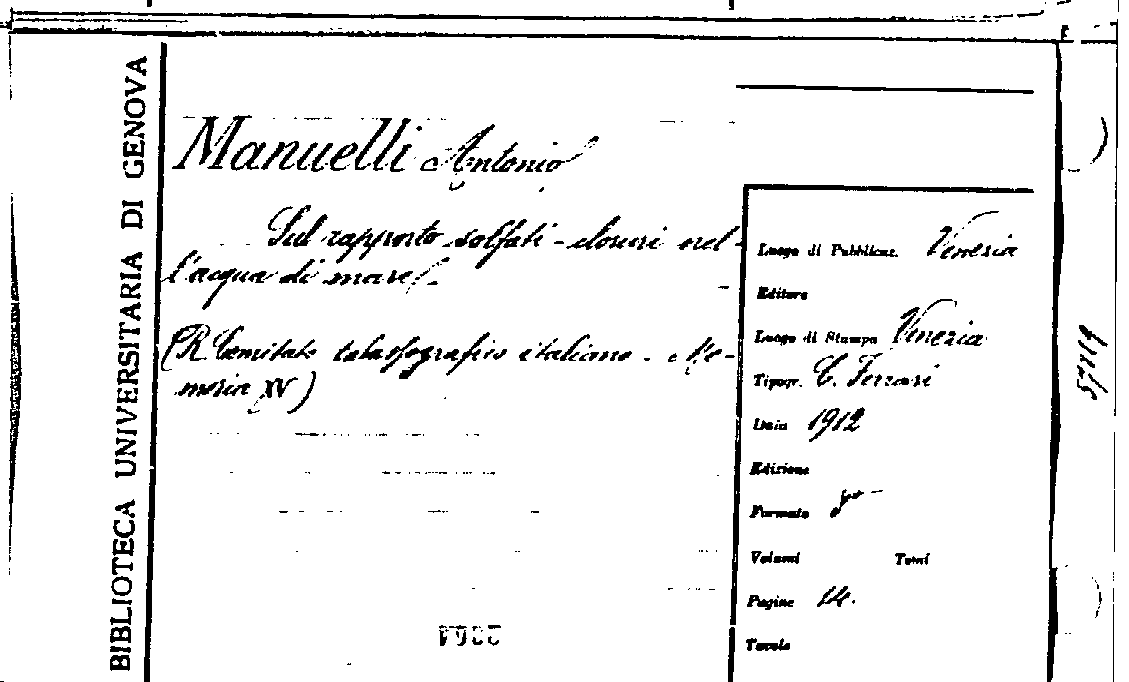 BIBLIOTECA UNIVERSITARIA DI GENOVA
Manuelli Antonio
Sul rapporto solfati-cloruri nel-
l'acqua di mare.
(R. Comitato talassografico italiano - Me-
moria XV)
Luogo di Pubblicaz. Venezia
Editore
Luogo di Stampa Venezia
Tipogr. C. Ferrari
Data 1912
Edizione
Formato
Volumi Tomi
Pagine 14.
Tavole